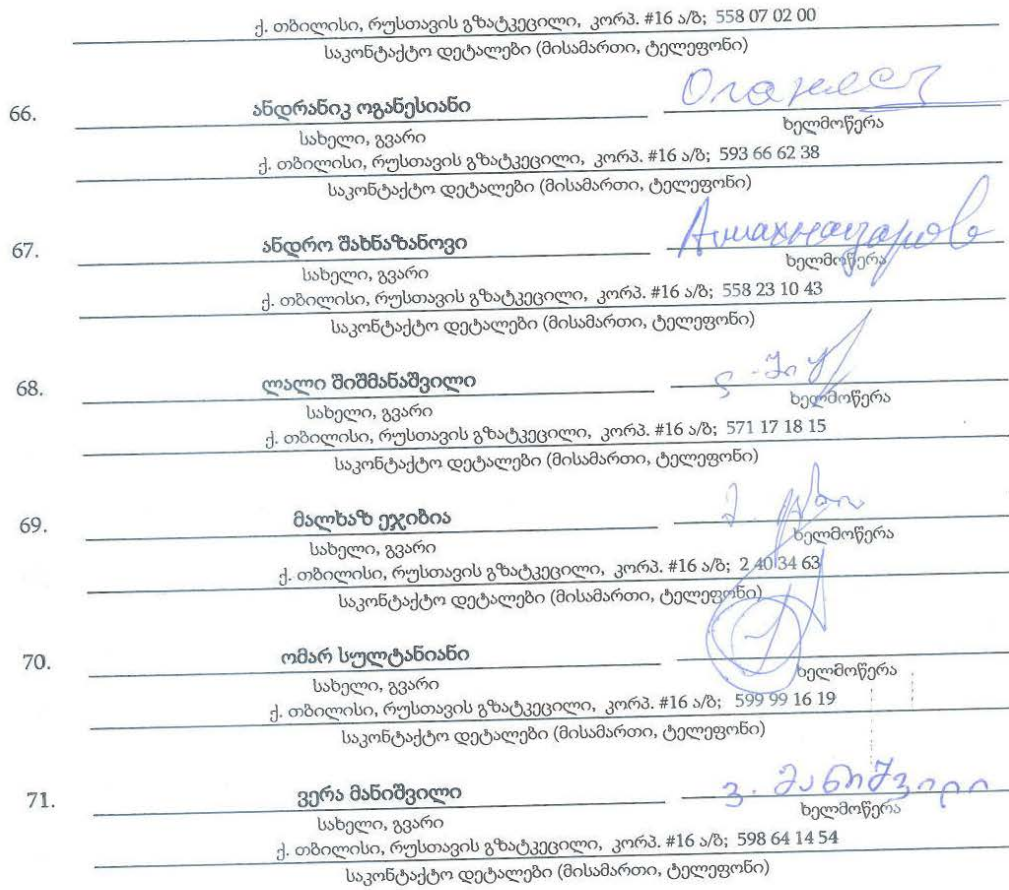 ქ. თბილისი, რუსთავის გზატკეცილი, კორპ. #16 ა/ბ; 558 07 02 00
საკონტაქტო დეტალები (მისამართი, ტელეფონი)
66. ანდრანიკ ოგანესიანი
სახელი, გვარი ხელმოწერა
ქ. თბილისი, რუსთავის გზატკეცილი, კორპ. #16 ა/ბ; 593 66 62 38
საკონტაქტო დეტალები (მისამართი, ტელეფონი)
67. ანდრო შახნაზანოვი
სახელი, გვარი ხელმოწერა
ქ. თბილისი, რუსთავის გზატკეცილი, კორპ. #16 ა/ბ; 558 23 10 43
საკონტაქტო დეტალები (მისამართი, ტელეფონი)
68. ლალი შიშმანაშვილი
სახელი, გვარი ხელმოწერა
ქ. თბილისი, რუსთავის გზატკეცილი, კორპ. #16 ა/ბ; 571 17 18 15
საკონტაქტო დეტალები (მისამართი, ტელეფონი)
69. მალხაზ ეჯიბია
სახელი, გვარი ხელმოწერა
ქ. თბილისი, რუსთავის გზატკეცილი, კორპ. #16 ა/ბ; 2 40 34 63
საკონტაქტო დეტალები (მისამართი, ტელეფონი)
70. ომარ სულტანიანი
სახელი, გვარი ხელმოწერა
ქ. თბილისი, რუსთავის გზატკეცილი, კორპ. #16 ა/ბ; 599 99 16 19
საკონტაქტო დეტალები (მისამართი, ტელეფონი)
71. ვერა მანიშვილი ვ. მანიშვილი
სახელი, გვარი ხელმოწერა
ქ. თბილისი, რუსთავის გზატკეცილი, კორპ. #16 ა/ბ; 598 64 14 54
საკონტაქტო დეტალები (მისამართი, ტელეფონი)